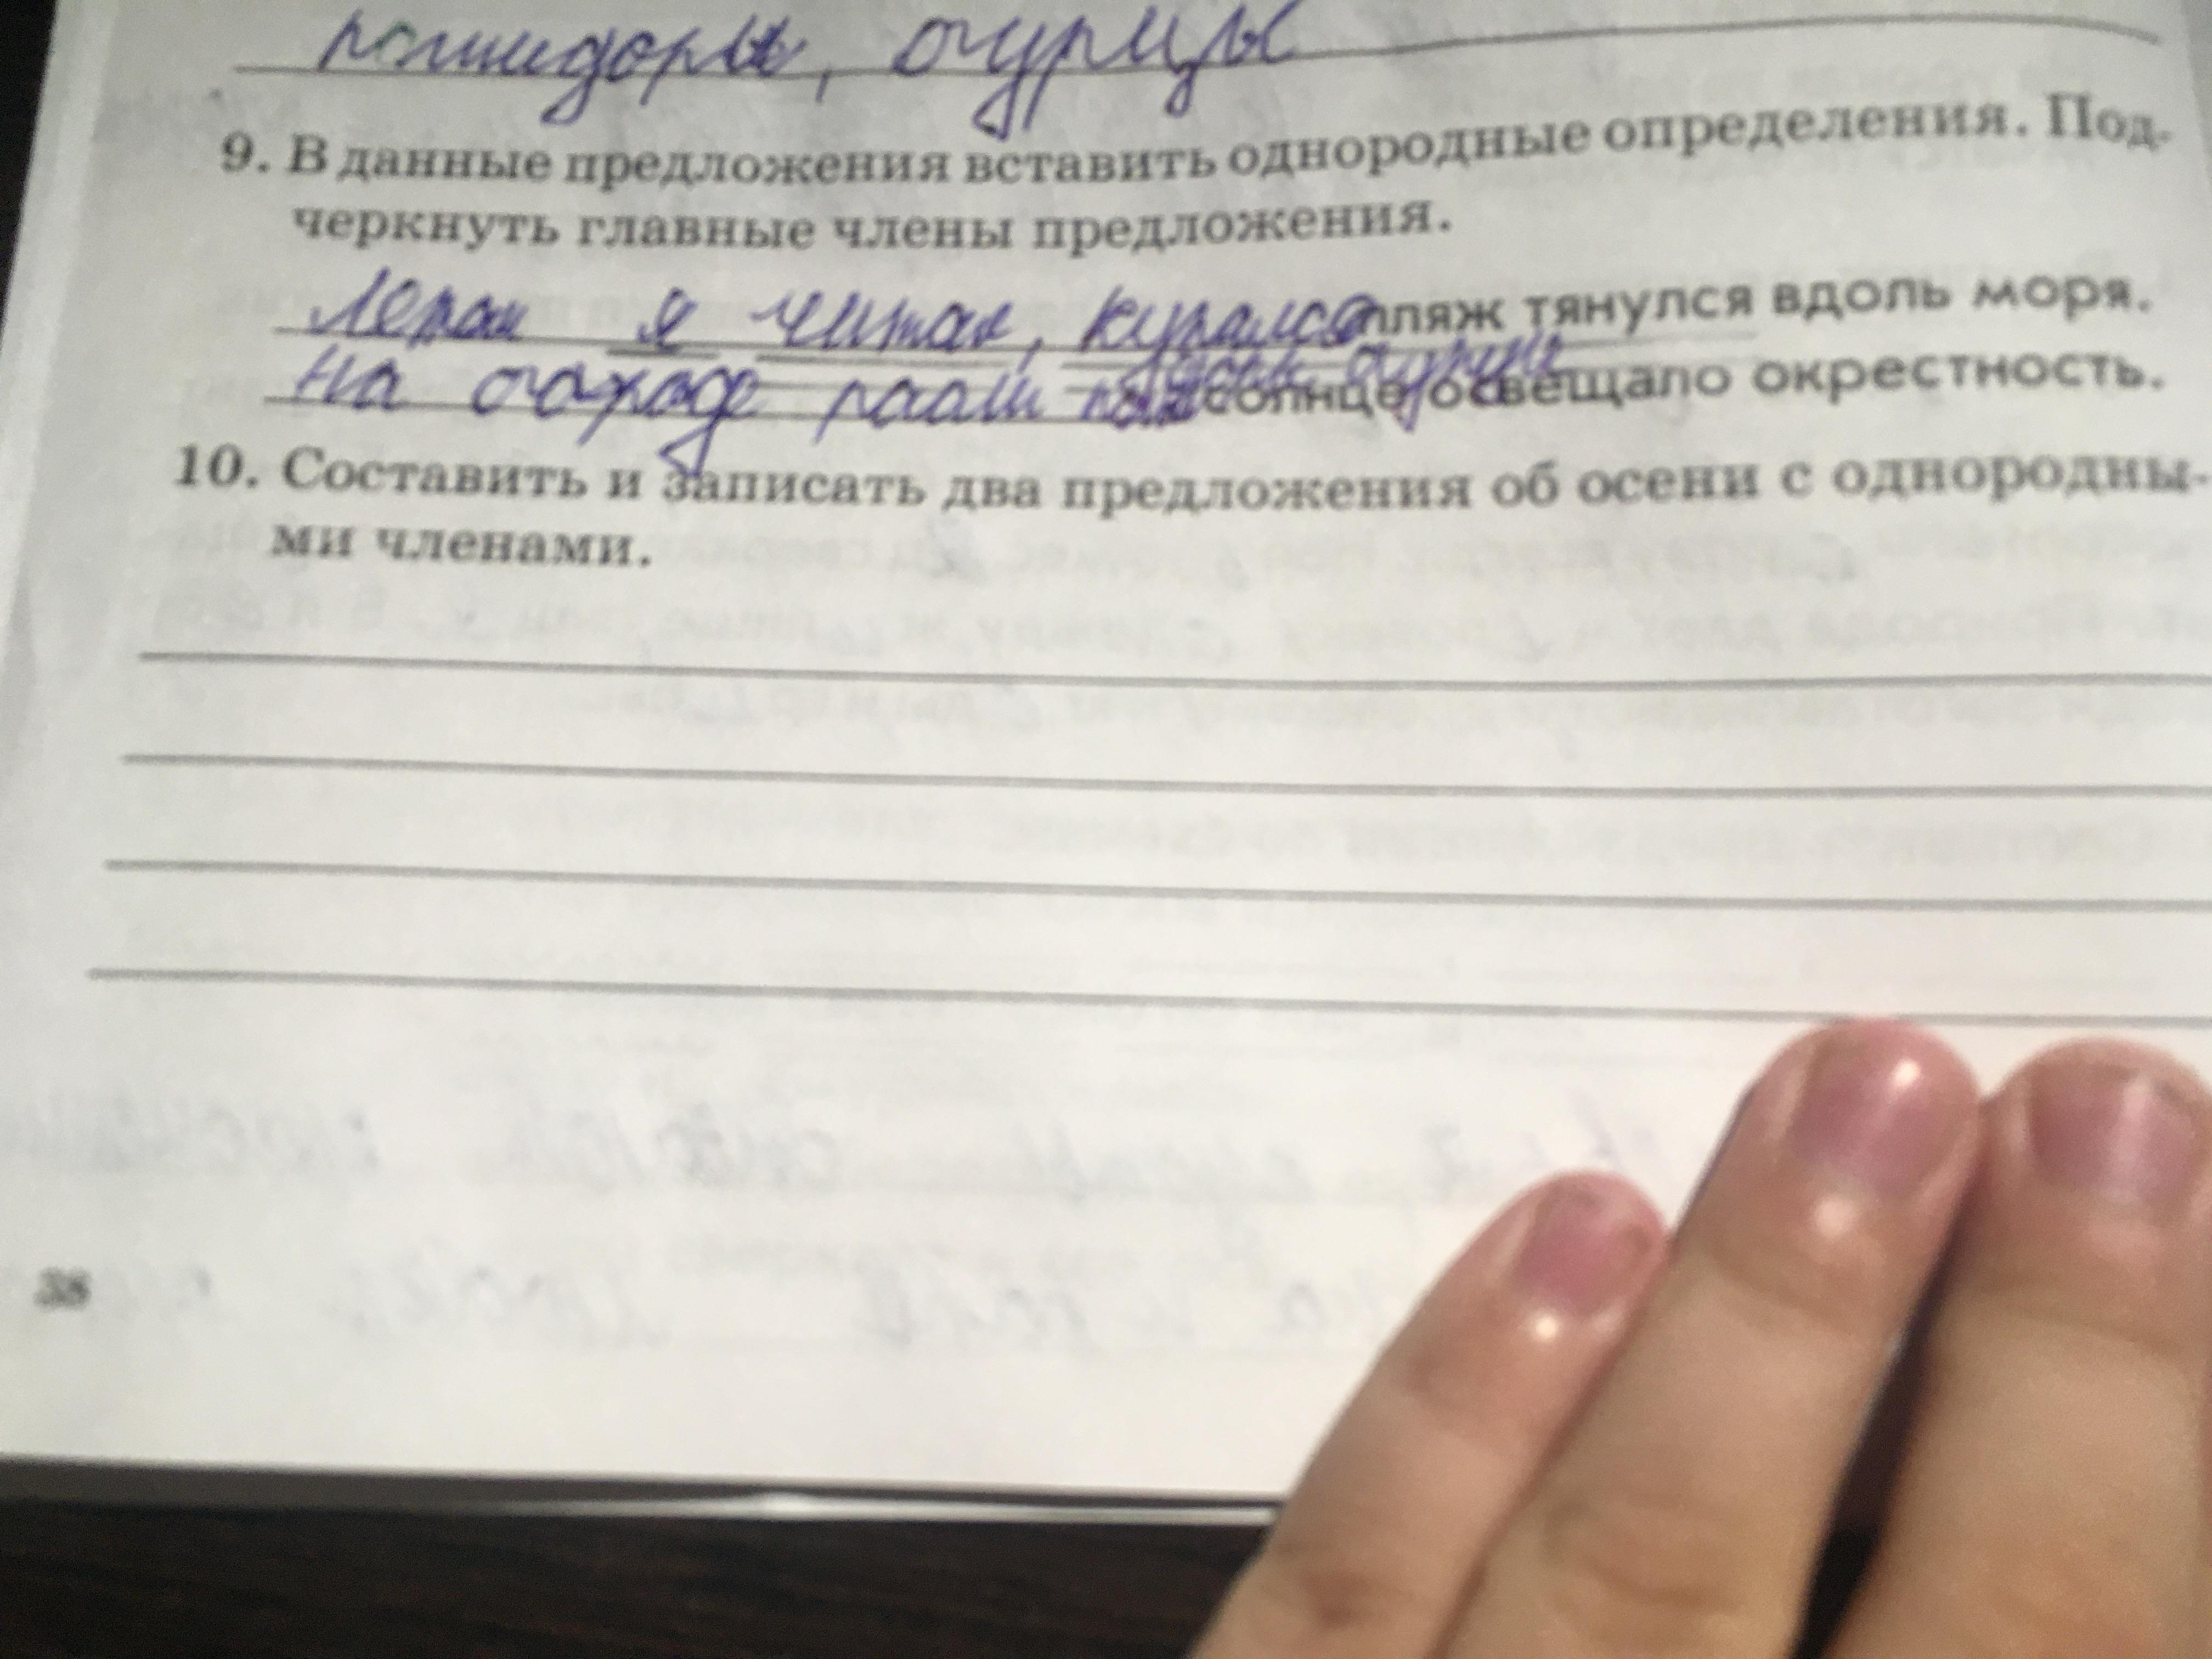 помидоры, огурцы
9. В данные предложения вставить однородные определения. Под-
черкнуть главные члены предложения.
Летом я читал, купался пляж тянулся вдоль моря.
На огороде солнце освещало окрестность.
10. Составить и записать два предложения об осени с однородны-
ми членами.
38